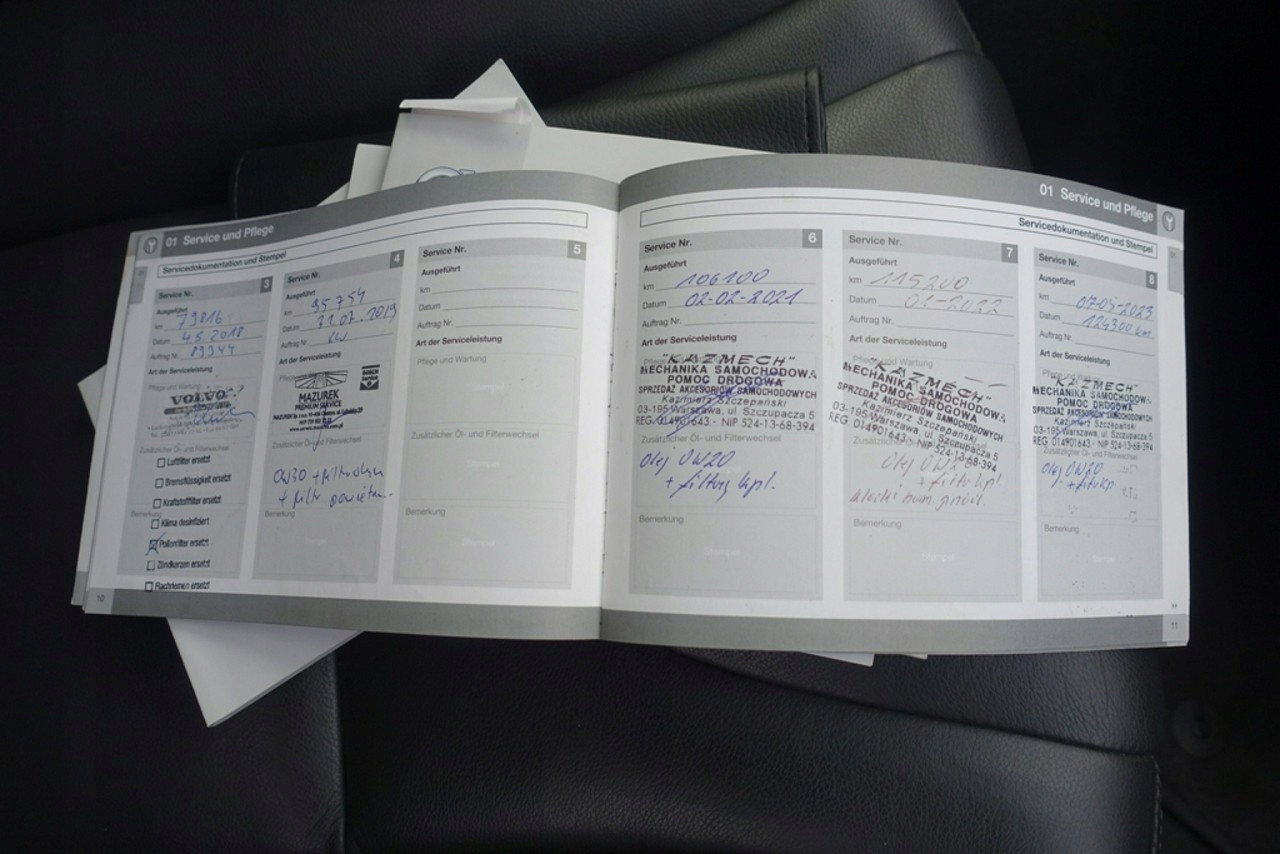 01 Service und Pflege
Servicedokumentation und Stempel
Service Nr. 3
Ausgeführt
km 79816
Datum 4.5.2018
Auftrag Nr. 89344
Art der Serviceleistung
Pflege und Wartung
VOLVO
Zusätzlicher Öl- und Filterwechsel
Luftfilter ersetzt
Bremsflüssigkeit ersetzt
Kraftstofffilter ersetzt
Klima desinfiziert
Bemerkung
Pollenfilter ersetzt
Zündkerzen ersetzt
Flachriemen ersetzt
10
Service Nr. 4
Ausgeführt
km 95754
Datum 31.07.2019
Auftrag Nr.
Art der Serviceleistung
Pflege und Wartung
BOSCH
Service
MAZUREK
PREMIUM SERVICE
Zusätzlicher Öl- und Filterwechsel
0W30 + filtr oleju
+ filtr powietrza
Bemerkung
Service Nr. 5
Ausgeführt
km
Datum
Auftrag Nr.
Art der Serviceleistung
Pflege und Wartung
Stempel
Zusätzlicher Öl- und Filterwechsel
Bemerkung
Stempel
01 Service und Pflege
Servicedokumentation und Stempel
Service Nr. 6
Ausgeführt
km 106100
Datum 02-02-2021
Auftrag Nr.
Art der Serviceleistung
Pflege und Wartung
"KAZMECH"
MECHANIKA SAMOCHODOWA
POMOC DROGOWA
SPRZEDAŻ AKCESORIÓW SAMOCHODOWYCH
Kazimierz Szczepański
03-195 Warszawa, ul. Szczupacza 5
REG. 014901643 - NIP 524-13-68-394
Zusätzlicher Öl- und Filterwechsel
olej 0W20
+ filtry kpl.
Bemerkung
Stempel
Service Nr. 7
Ausgeführt
km 115200
Datum 01-2022
Auftrag Nr.
Art der Serviceleistung
Pflege und Wartung
"KAZMECH"
MECHANIKA SAMOCHODOWA
POMOC DROGOWA
SPRZEDAŻ AKCESORIÓW SAMOCHODOWYCH
Kazimierz Szczepański
03-195 Warszawa, ul. Szczupacza 5
REG 014901643 - NIP 524-13-68-394
Zusätzlicher Öl- und Filterwechsel
olej 0W
+ filtry kpl
klocki ham.
Bemerkung
Stempel
Service Nr. 8
Ausgeführt
km 07-05-2023
Datum 124300 km
Auftrag Nr.
Art der Serviceleistung
Pflege und Wartung
"KAZMECH"
MECHANIKA SAMOCHODOWA
POMOC DROGOWA
SPRZEDAŻ AKCESORIÓW SAMOCHODOWYCH
Kazimierz Szczepański
03-195 Warszawa, ul. Szczupacza 5
REG 014901643 - NIP 524-13-68-394
Zusätzlicher Öl- und Filterwechsel
olej 0W20
+ filtr kp
Bemerkung
11